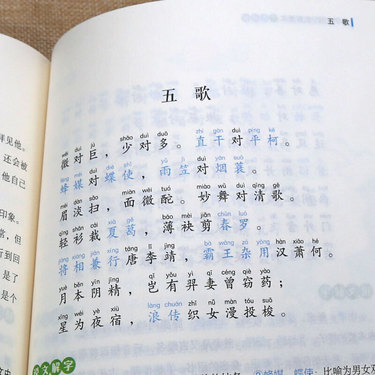 拜见他。
还会被
他自己
印象。
常，但
行到回
是了
是个
五 歌
五 歌
wēi duì jù shǎo duì duō zhí gàn duì píng kē
微对巨，少对多。直干对平柯。
fēng méi duì dié shǐ yǔ lì duì yān suō
蜂媒对蝶使，雨笠对烟蓑。
méi dàn sǎo miàn wēi tuó miào wǔ duì qīng gē
眉淡扫，面微酡。妙舞对清歌。
qīng shān cái xià gé bó mèi jiǎn chūn luó
轻衫裁夏葛，薄袂剪春罗。
jiàng xiàng jiān xíng táng lǐ jìng bà wáng zá yòng hàn xiāo hé
将相兼行唐李靖，霸王杂用汉萧何。
yuè běn yīn jīng qǐ yǒu yì qī céng qiè yào
月本阴精，岂有羿妻曾窃药；
xīng wéi yè xiù làng chuán zhī nǚ màn tóu suō
星为夜宿，浪传织女漫投梭。
说文解字